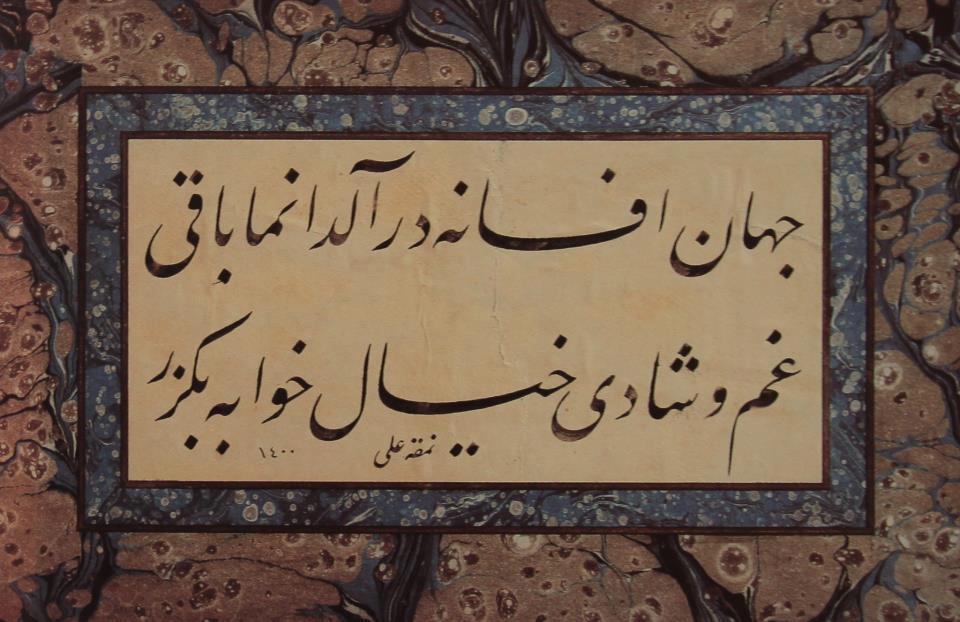 جهان افسانه در آلدانما باقی
غم و شادی خیال خوابه بکزر
نمقه علی
١٤٠٠